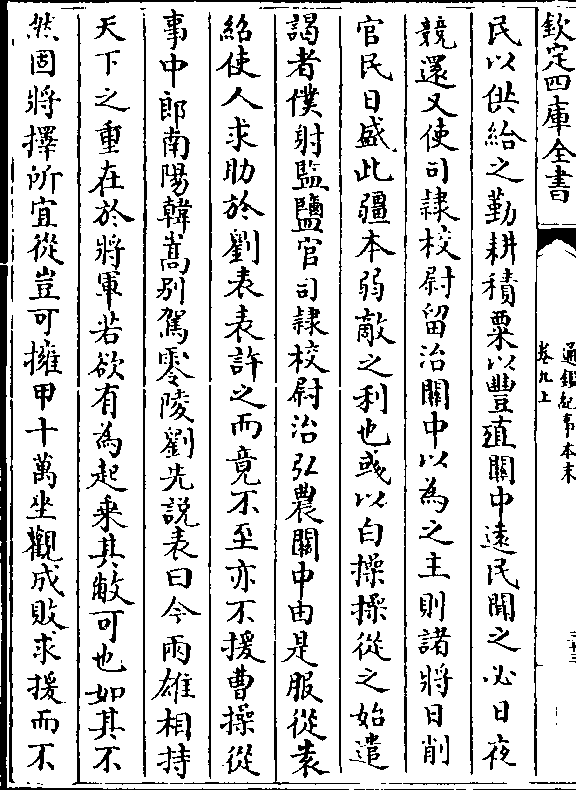 欽定四庫全書
通鑑紀事本末
卷九上
二十三
民以供給之勤耕積粟以豐殖關中遠民聞之必日夜
競還又使司隷校尉留治關中以為之主則諸將日削
官民日盛此彊本弱敵之利也彧以白操操從之始遣
謁者僕射監鹽官司隷校尉治弘農關中由是服從袁
紹使人求助於劉表表許之而竟不至亦不援曹操從
事中郎南陽韓嵩别駕零陵劉先說表曰今兩雄相持
天下之重在於將軍若欲有為起乘其敝可也如其不
然固將擇所宜從豈可擁甲十萬坐觀成敗求援而不